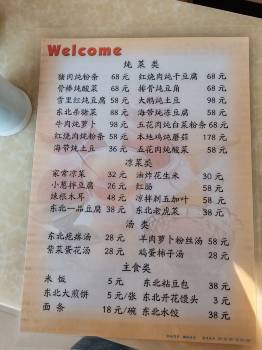 Welcome
炖菜类
猪肉炖粉条 68元 红烧肉炖干豆腐 68元
骨棒炖酸菜 68元 排骨炖豆角 68元
雪里红炖豆腐 58元 大鹅炖土豆 98元
东北杀猪菜 88元 海带炖冻豆腐 58元
牛肉炖萝卜 98元 五花肉炖白菜粉条 68元
红烧肉炖粉条 58元 本地鸡炖蘑菇 178元
海带炖土豆 36元 五花肉炖酸菜 58元
凉菜类
家常凉菜 32元 油炸花生米 30元
小葱拌豆腐 26元 红肠 58元
辣根木耳 48元 凉拌刺五加叶 58元
东北一品豆腐 38元 东北老虎菜 38元
汤类
东北疙瘩汤 28元 羊肉萝卜粉丝汤 58元
紫菜蛋花汤 28元 鸡蛋柿子汤 28元
主食类
米饭 5元 东北粘豆包 38元
东北大煎饼 5元/张 东北开花馒头 3元
面条 18元/碗 东北水饺 38元